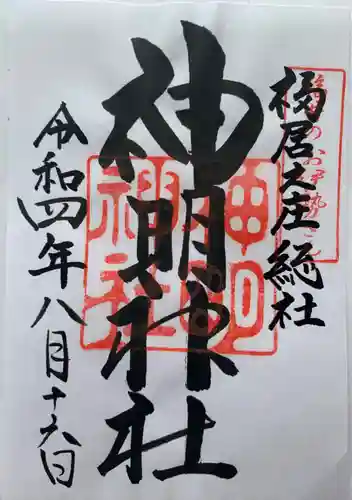 福居之庄総社
神明神社
令和四年八月十六日
神明
神社